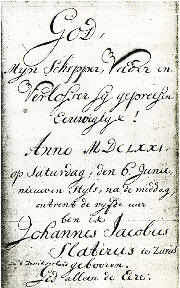 God,
Mijn Schepper, Vader en
Verlosser sij gepresen
Eeuwiglijk!
Anno MDCLXXI.
op Saturdag, den 6 Junii,
nieuwen Styls, na de middag
ontrent de vijfde uur
ben ik
Johannes Jacobus
Slaterus te
geboren.
God alleen de Eere.